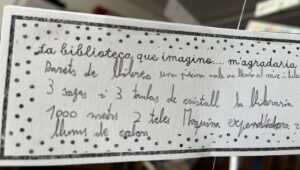 La biblioteca que imagino.... m'agradaria
Parets de llibres una piscina amb un
3 sofes i 3 taules de cristall la llibreria
1000 metres 2 teles Maquina expenedora
llums de colors